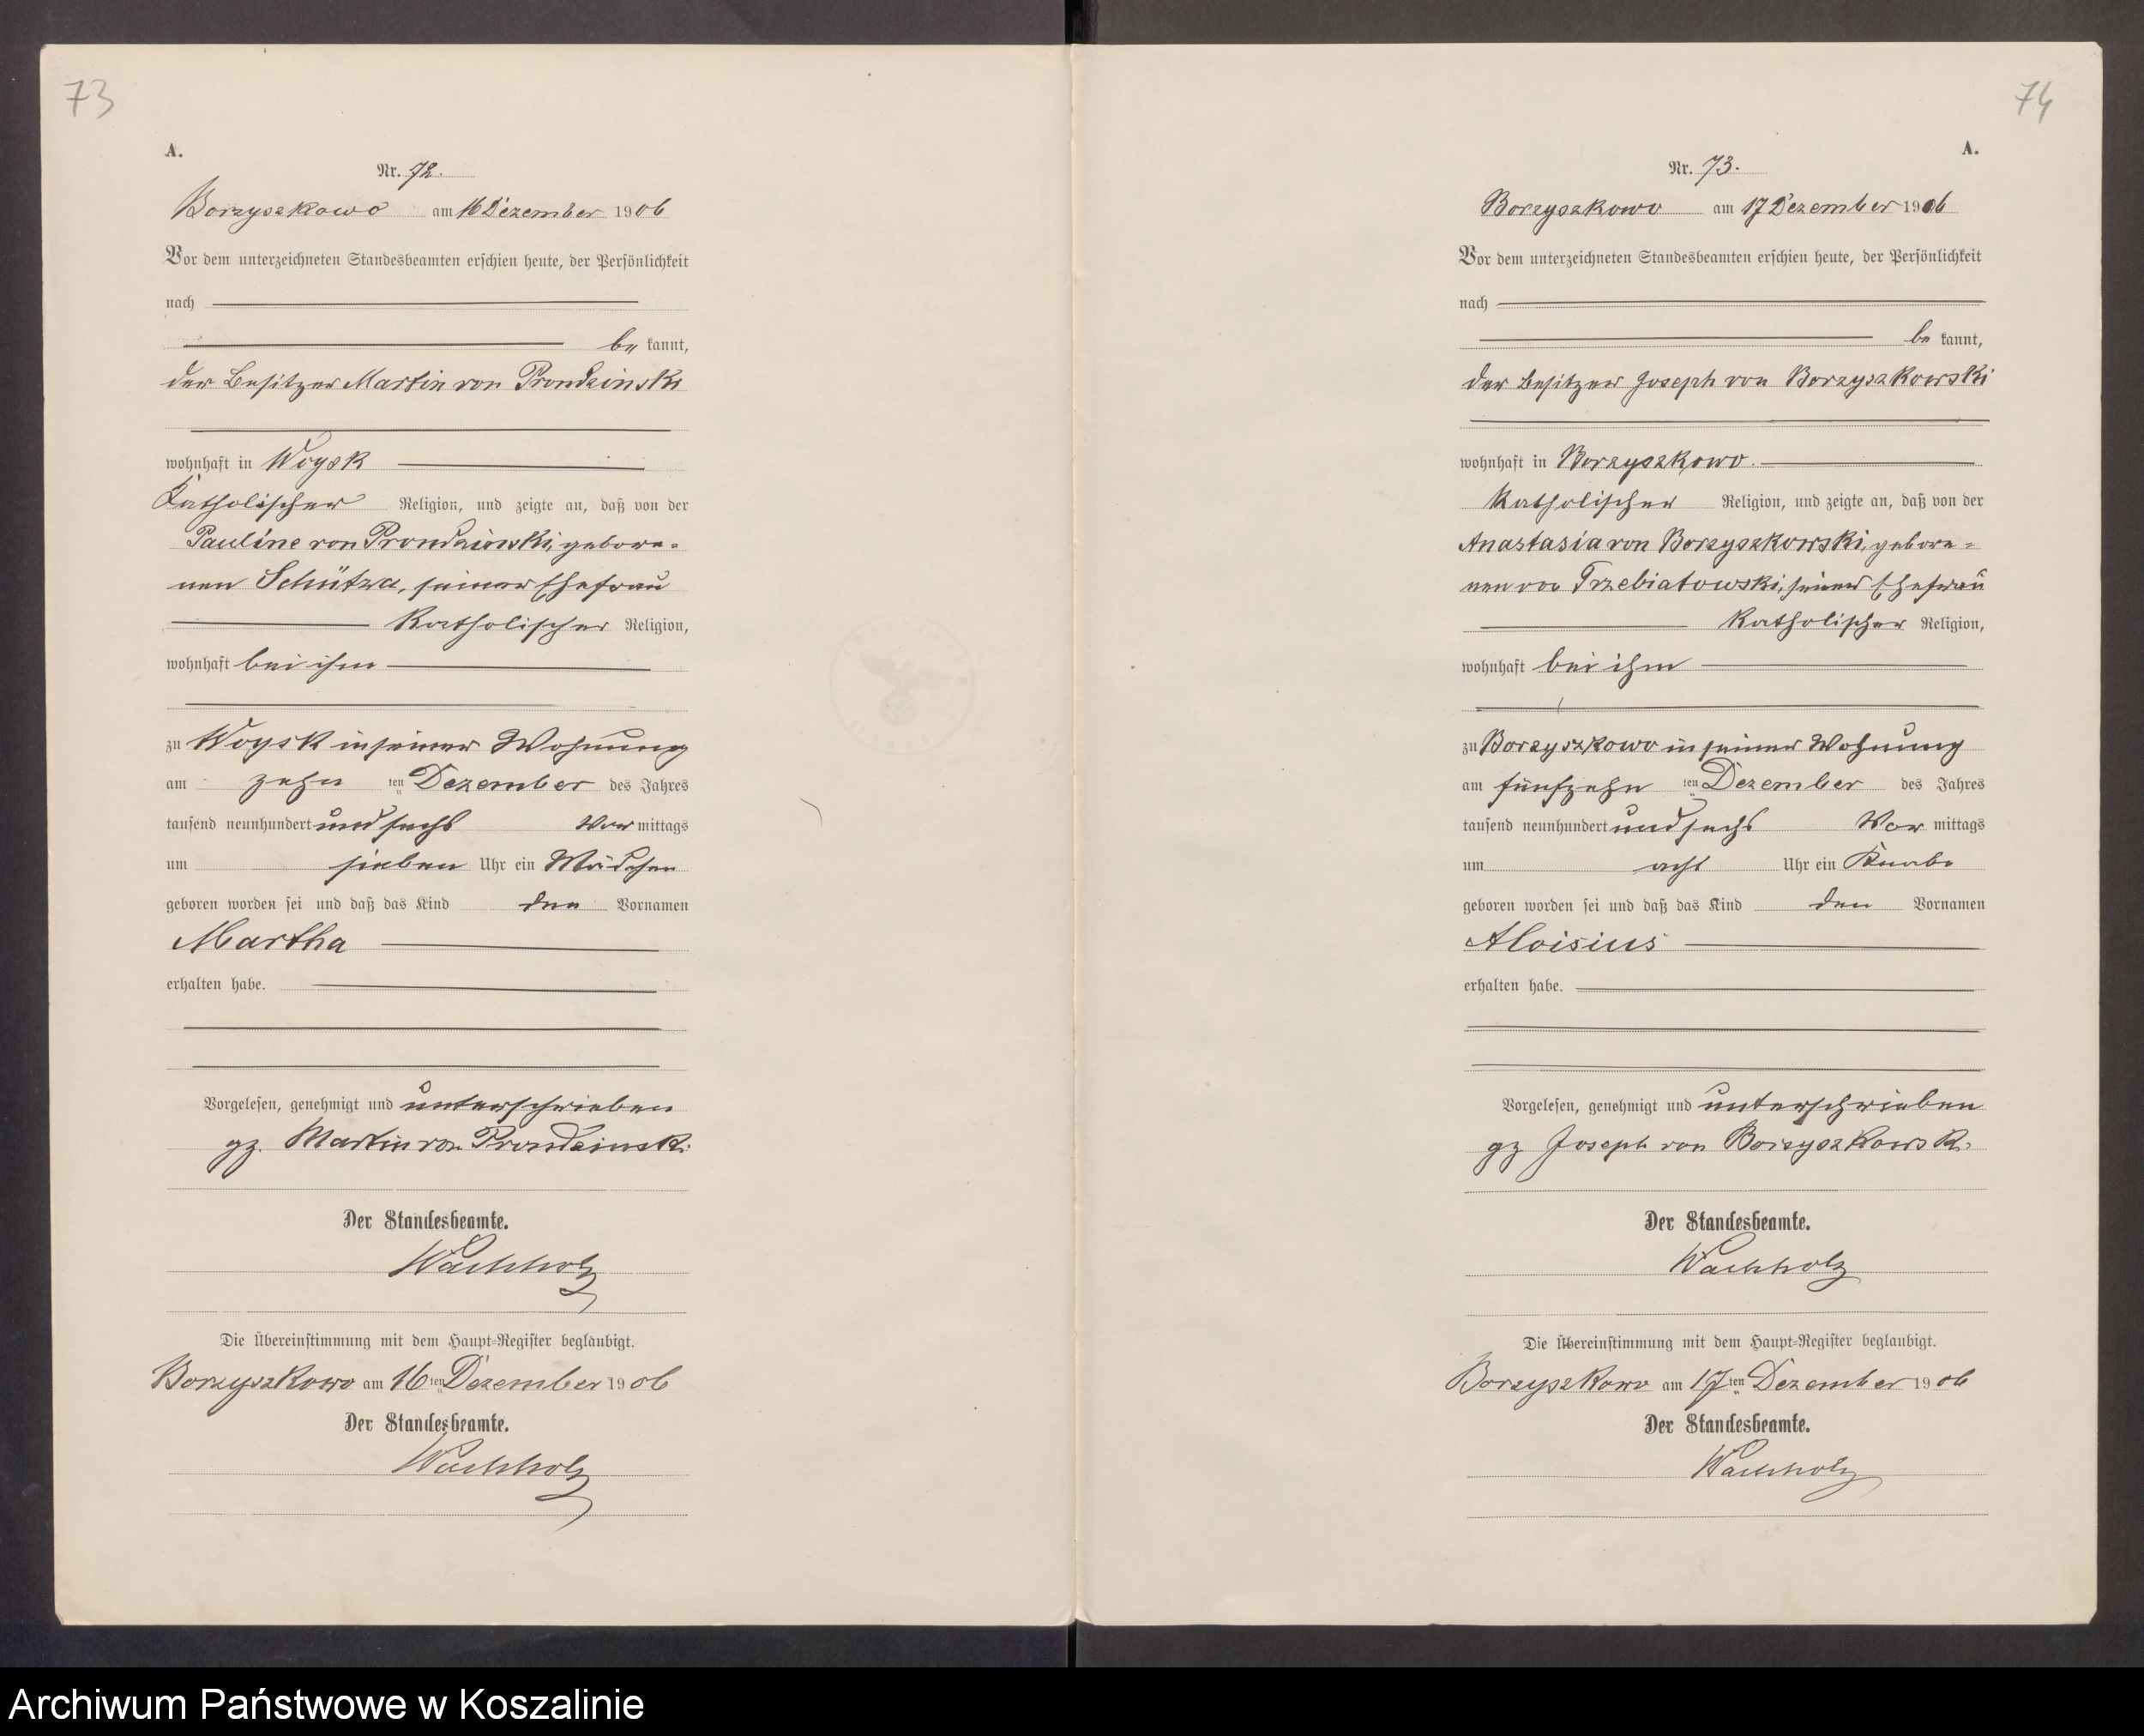 73
A.
Nr. 72.
Borzyszkowo am 16 Dezember 1906
Vor dem unterzeichneten Standesbeamten erschien heute, der Persönlichkeit
nach
be kannt,
der Besitzer Martin von Prondzinski
wohnhaft in Woysk
Katholischer Religion, und zeigte an, daß von der
Pauline von Prondzinski, gebore-
nen Schütza, seiner Ehefrau
Katholischer Religion,
wohnhaft bei ihm
zu Woysk in seiner Wohnung
am zehn ten Dezember des Jahres
tausend neunhundert und sechs Vor mittags
um sieben Uhr ein Mädchen
geboren worden sei und daß das Kind den Vornamen
Martha
erhalten habe.
Vorgelesen, genehmigt und unterschrieben
gz. Martin von Prondzinski
Der Standesbeamte.
Wachholz
Die Übereinstimmung mit dem Haupt-Register beglaubigt.
Borzyszkowo am 16 ten Dezember 1906
Der Standesbeamte.
Wachholz
74
A.
Nr. 73.
Borzyszkowo am 17 Dezember 1906
Vor dem unterzeichneten Standesbeamten erschien heute, der Persönlichkeit
nach
be kannt,
der Besitzer Joseph von Borzyszkowski
wohnhaft in Borzyszkowo.
Katholischer Religion, und zeigte an, daß von der
Anastasia von Borzyszkowski, gebore-
nen von Trzebiatowski, seiner Ehefrau
Katholischer Religion,
wohnhaft bei ihm
zu Borzyszkowo in seiner Wohnung
am fünfzehn ten Dezember des Jahres
tausend neunhundert und sechs Vor mittags
um acht Uhr ein Knabe
geboren worden sei und daß das Kind den Vornamen
Aloisius
erhalten habe.
Vorgelesen, genehmigt und unterschrieben
gz Joseph von Borzyszkowski
Der Standesbeamte.
Wachholz
Die Übereinstimmung mit dem Haupt-Register beglaubigt.
Borzyszkowo am 17 ten Dezember 1906
Der Standesbeamte.
Wachholz
Archiwum Państwowe w Koszalinie